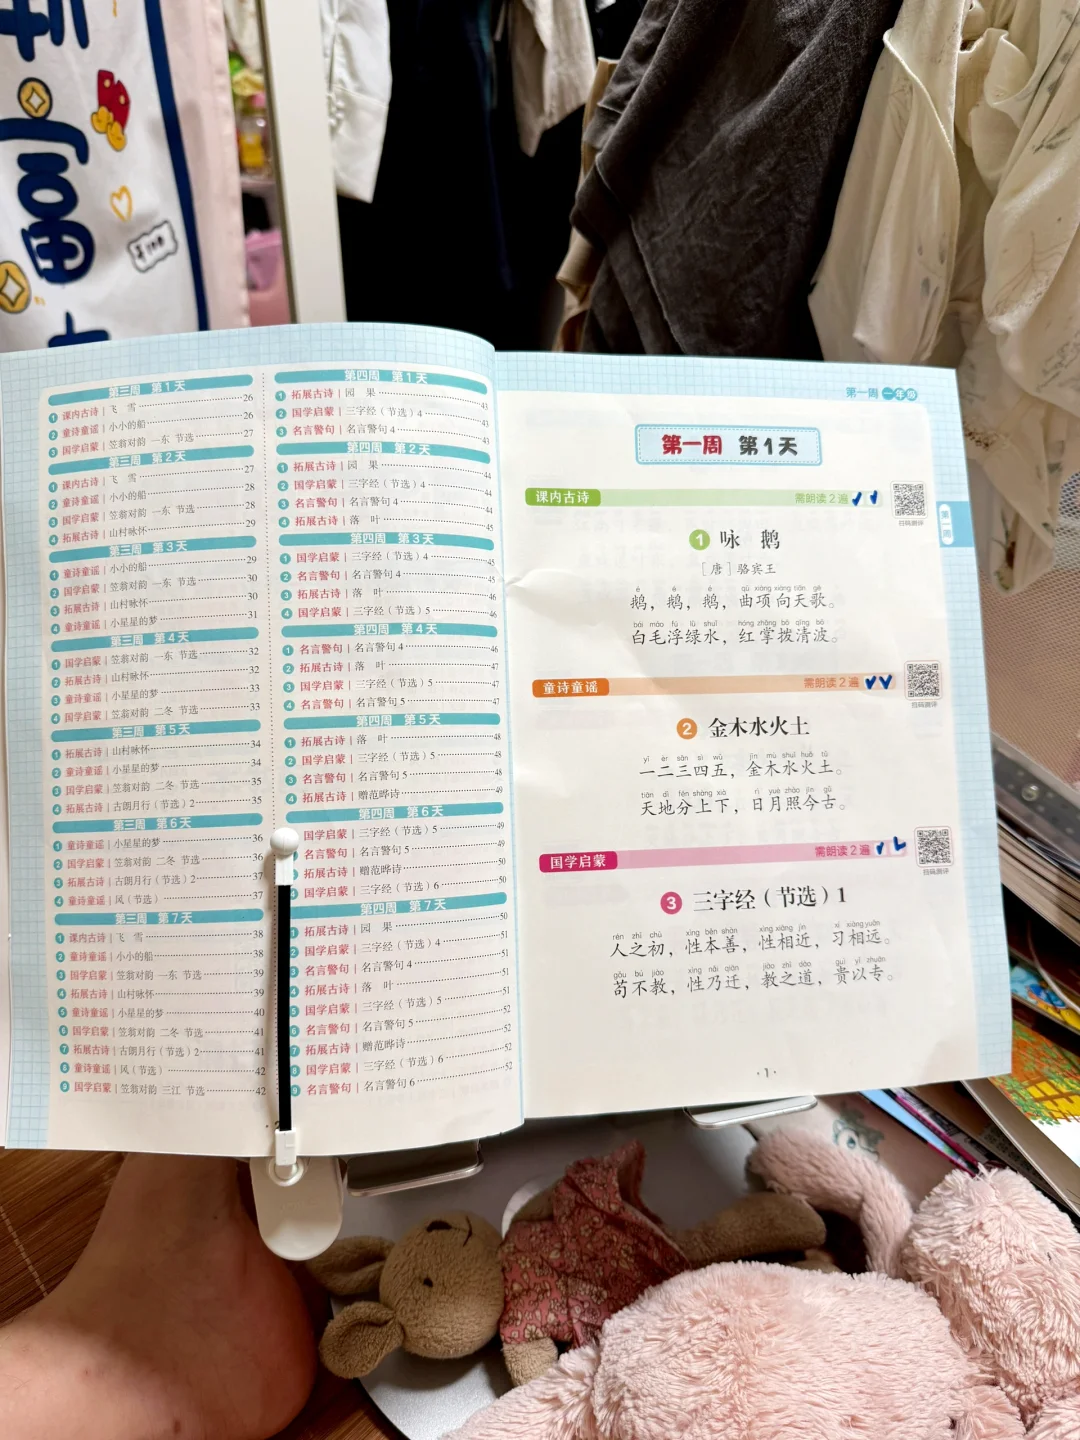 富
第三周 第1天
1 课内古诗 | 飞 雪 26
2 童诗童谣 | 小小的船 26
3 国学启蒙 | 笠翁对韵 一东 节选 27
第三周 第2天
1 课内古诗 | 飞 雪 27
2 童诗童谣 | 小小的船 28
3 国学启蒙 | 笠翁对韵 一东 节选 28
4 拓展古诗 | 山村咏怀 29
第三周 第3天
1 童诗童谣 | 小小的船 29
2 国学启蒙 | 笠翁对韵 一东 节选 30
3 拓展古诗 | 山村咏怀 30
4 童诗童谣 | 小星星的梦 31
第三周 第4天
1 国学启蒙 | 笠翁对韵 一东 节选 32
2 拓展古诗 | 山村咏怀 32
3 童诗童谣 | 小星星的梦 33
4 国学启蒙 | 笠翁对韵 二冬 节选 33
第三周 第5天
1 拓展古诗 | 山村咏怀 34
2 童诗童谣 | 小星星的梦 34
3 国学启蒙 | 笠翁对韵 二冬 节选 35
4 拓展古诗 | 古朗月行(节选)2 35
第三周 第6天
1 童诗童谣 | 小星星的梦 36
2 国学启蒙 | 笠翁对韵 二冬 节选 36
3 拓展古诗 | 古朗月行(节选)2 37
4 童诗童谣 | 风(节选) 37
第三周 第7天
1 课内古诗 | 飞 雪 38
2 童诗童谣 | 小小的船 38
3 国学启蒙 | 笠翁对韵 一东 节选 39
4 拓展古诗 | 山村咏怀 39
5 童诗童谣 | 小星星的梦 40
6 国学启蒙 | 笠翁对韵 二冬 节选 41
7 拓展古诗 | 古朗月行(节选)2 41
8 童诗童谣 | 风(节选) 42
9 国学启蒙 | 笠翁对韵 三江 节选 42
第四周 第1天
1 拓展古诗 | 园 果 43
2 国学启蒙 | 三字经(节选)4 43
3 名言警句 | 名言警句4 43
第四周 第2天
1 拓展古诗 | 园 果 44
2 国学启蒙 | 三字经(节选)4 44
3 名言警句 | 名言警句4 44
4 拓展古诗 | 落 叶 45
第四周 第3天
1 国学启蒙 | 三字经(节选)4 45
2 名言警句 | 名言警句4 45
3 拓展古诗 | 落 叶 46
4 国学启蒙 | 三字经(节选)5 46
第四周 第4天
1 名言警句 | 名言警句4 46
2 拓展古诗 | 落 叶 47
3 国学启蒙 | 三字经(节选)5 47
4 名言警句 | 名言警句5 47
第四周 第5天
1 拓展古诗 | 落 叶 48
2 国学启蒙 | 三字经(节选)5 48
3 名言警句 | 名言警句5 48
4 拓展古诗 | 赠范晔诗 49
第四周 第6天
国学启蒙 | 三字经(节选)5 49
名言警句 | 名言警句5 49
拓展古诗 | 赠范晔诗 50
国学启蒙 | 三字经(节选)6 50
第四周 第7天
拓展古诗 | 园 果 50
国学启蒙 | 三字经(节选)4 51
名言警句 | 名言警句4 51
拓展古诗 | 落 叶 51
国学启蒙 | 三字经(节选)5 51
名言警句 | 名言警句5 52
7 拓展古诗 | 赠范晔诗 52
8 国学启蒙 | 三字经(节选)6 52
9 名言警句 | 名言警句6 52
第一周 一年级
第一周
第一周 第1天
课内古诗 需朗读2遍
扫码测评
1 咏 鹅
[唐] 骆宾王
é é é qū xiàng xiàng tiān gē
鹅，鹅，鹅，曲项向天歌。
bái máo fú lǜ shuǐ hóng zhǎng bō qīng bō
白毛浮绿水，红掌拨清波。
童诗童谣 需朗读2遍
扫码测评
2 金木水火土
yī èr sān sì wǔ jīn mù shuǐ huǒ tǔ
一二三四五，金木水火土。
tiān dì fēn shàng xià rì yuè zhào jīn gǔ
天地分上下，日月照今古。
国学启蒙 需朗读2遍
扫码测评
3 三字经(节选)1
rén zhī chū xìng běn shàn xìng xiāng jìn xí xiāng yuǎn
人之初，性本善，性相近，习相远。
gǒu bú jiào xìng nǎi qiān jiào zhī dào guì yǐ zhuān
苟不教，性乃迁，教之道，贵以专。
·1·